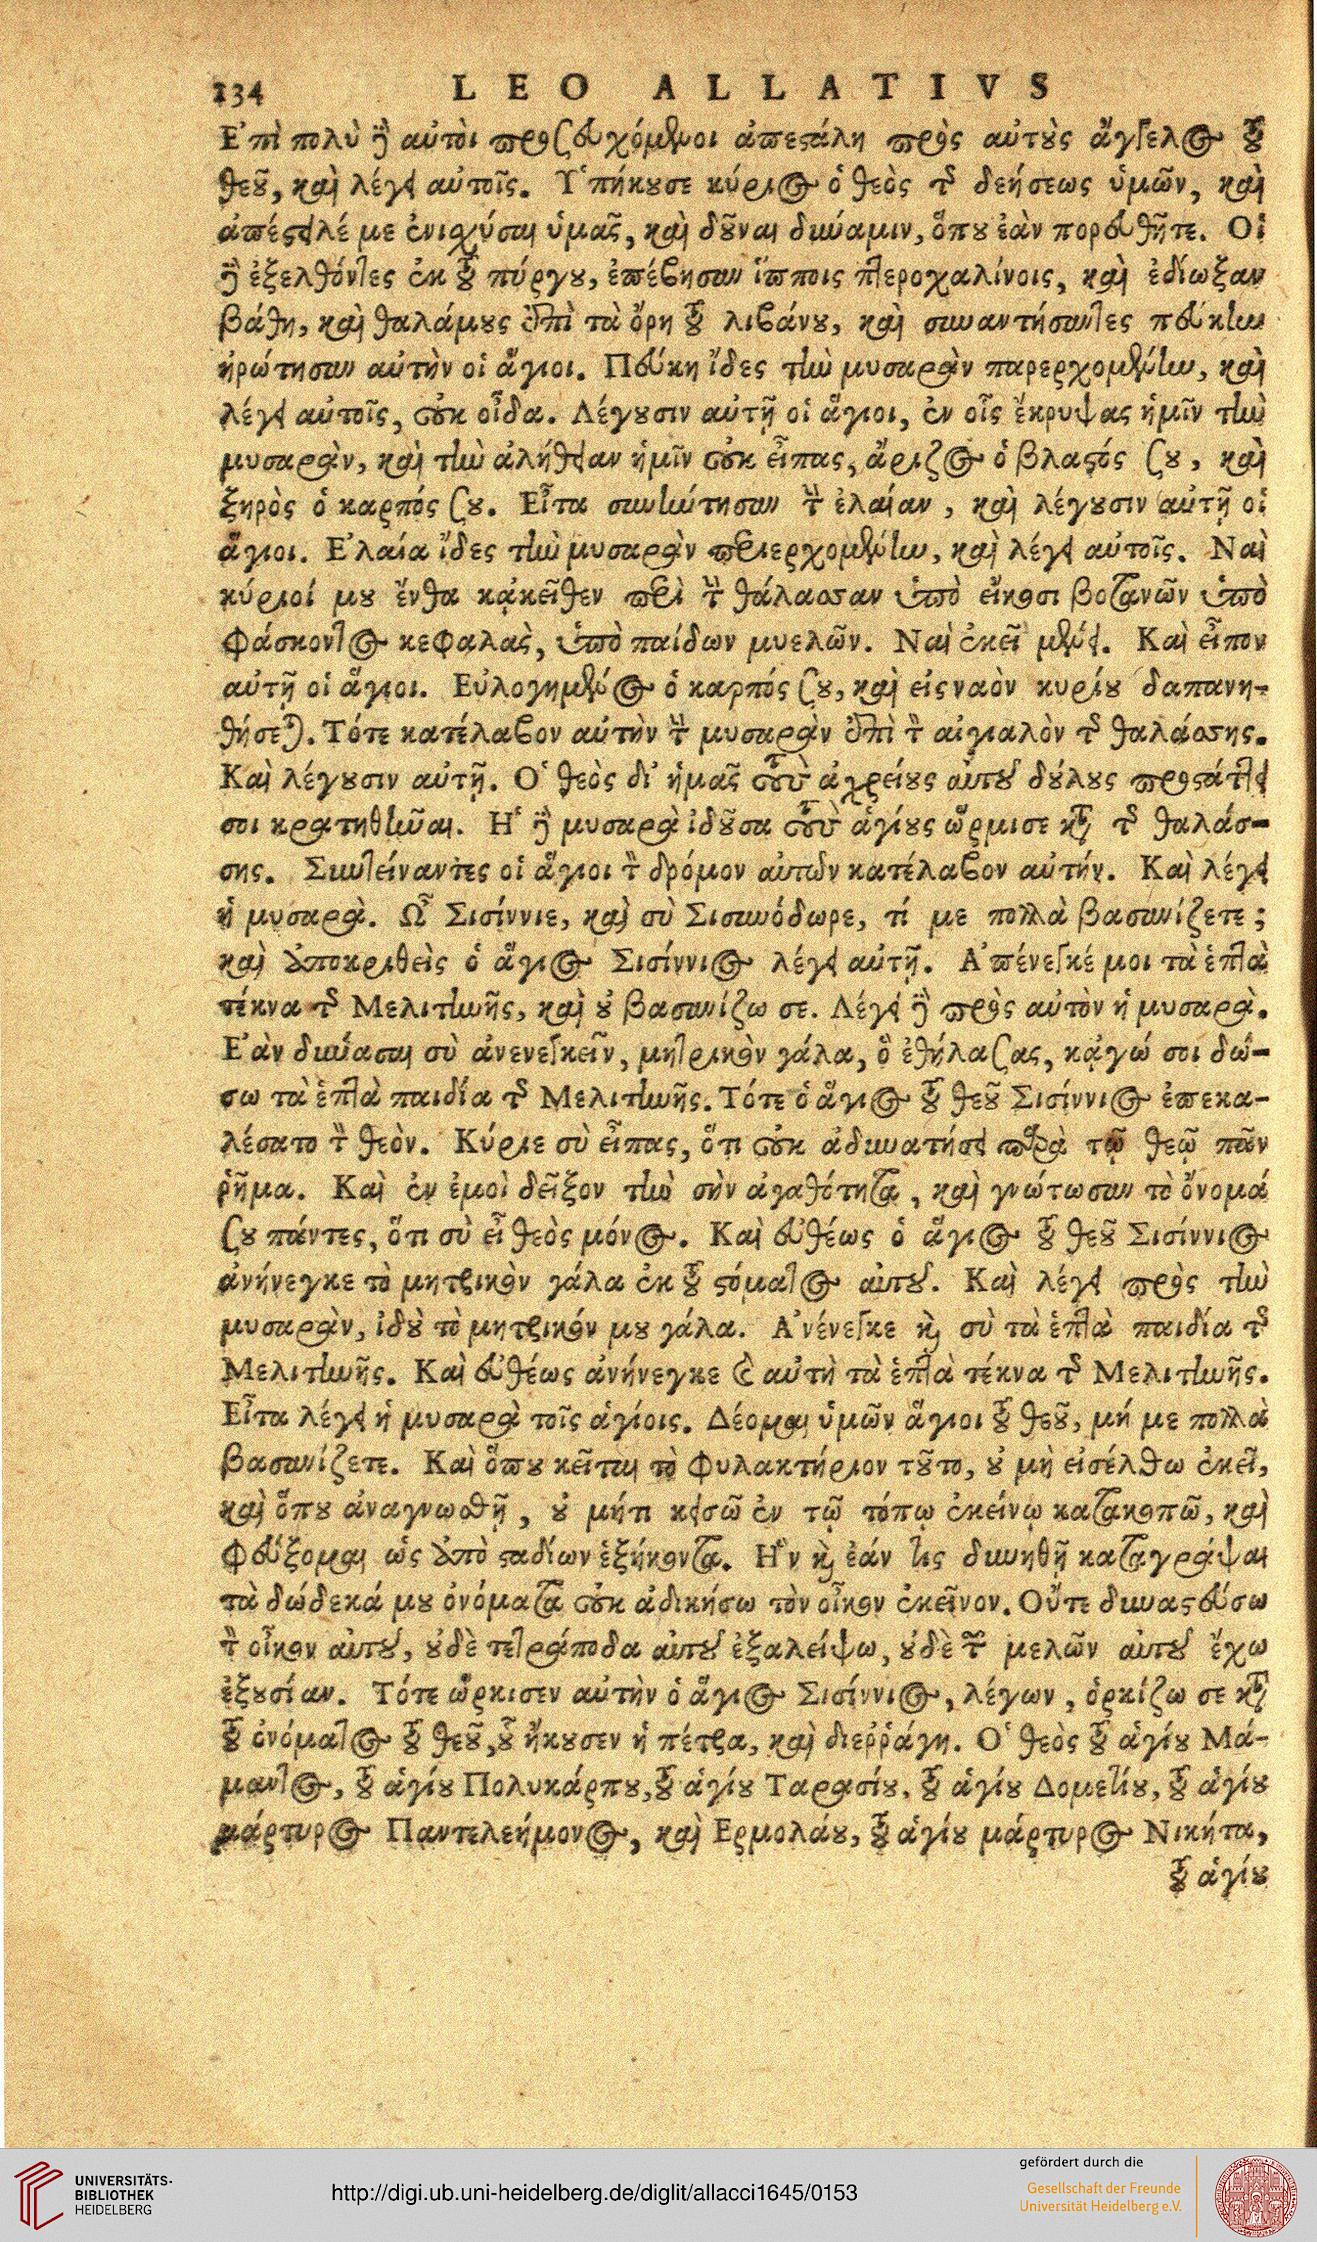 134 LEO ALLATIVS
Ἐπὶ πολὺ ἢ αὐτοὶ προσευχόμενοι ἀπεστάλη πρὸς αὐτοὺς ἄγγελος τοῦ
θεοῦ, καὶ λέγει αὐτοῖς. Ὑπήκουσε κύριος ὁ θεὸς τῆς δεήσεως ὑμῶν, καὶ
ἀπέστειλέ με ἐνισχύσαι ὑμᾶς, καὶ δοῦναι δύναμιν, ὅπου ἐὰν πορευθῆτε. Οἱ
δὲ ἐξελθόντες ἐκ τοῦ πύργου, ἐπέβησαν ἵπποις πτεροχαλίνοις, καὶ ἐδίωξαν
βάθη, καὶ θαλάμους ἐπὶ τὰ ὄρη τοῦ λιβάνου, καὶ συναντήσαντες πεύκην
ἠρώτησαν αὐτὴν οἱ ἅγιοι. Πεύκη ἴδες τὴν μυσαρὰν παρερχομένην, καὶ
λέγει αὐτοῖς, οὐκ οἶδα. Λέγουσιν αὐτῇ οἱ ἅγιοι, ἐν οἷς ἔκρυψας ἡμῖν τὴν
μυσαρὰν, καὶ τὴν ἀλήθειαν ἡμῖν οὐκ εἶπας, ἄριζος ὁ βλαστός σου, καὶ
ξηρὸς ὁ καρπός σου. Εἶτα συνήντησαν τὴν ἐλαίαν, καὶ λέγουσιν αὐτῇ οἱ
ἅγιοι. Ἐλαία ἴδες τὴν μυσαρὰν περιερχομένην, καὶ λέγει αὐτοῖς. Ναὶ
κύριοί μου ἔνθα κᾀκεῖθεν περὶ τὴν θάλασσαν ὑπὸ εἴκοσι βοτανῶν ὑπὸ
φάσκοντος κεφαλὰς, ὑπὸ παίδων μυελῶν. Ναὶ ἐκεῖ μένει. Καὶ εἶπον
αὐτῇ οἱ ἅγιοι. Εὐλογημένος ὁ καρπός σου, καὶ εἰς ναὸν κυρίου δαπανη-
θήσεται. Τότε κατέλαβον αὐτὴν τὴν μυσαρὰν ἐπὶ τὸν αἰγιαλὸν τῆς θαλάσσης.
Καὶ λέγουσιν αὐτῇ. Ὁ θεὸς δι' ἡμᾶς τοὺς ἀχρείους αὐτοῦ δούλους προστάττει
σοι κρατηθῆναι. Ἡ δὲ μυσαρὰ ἰδοῦσα τοὺς ἁγίους ὥρμισε κατὰ τῆς θαλάσ-
σης. Συντείναντες οἱ ἅγιοι τὸν δρόμον αὐτῶν κατέλαβον αὐτήν. Καὶ λέγει
ἡ μυσαρὰ. Ὦ Σισίννιε, καὶ σὺ Σισυνόδωρε, τί με πολλὰ βασανίζετε;
καὶ ἀποκριθεὶς ὁ ἅγιος Σισίννιος λέγει αὐτῇ. Ἀπένεγκέ μοι τὰ ἑπτὰ
τέκνα τῆς Μελιτηνῆς, καὶ οὐ βασανίζω σε. Λέγει δὲ πρὸς αὐτὸν ἡ μυσαρὰ.
Ἐὰν δύνασαι σὺ ἀνενεγκεῖν, μητρικὸν γάλα, ὃ ἐθήλασας, κᾀγώ σοι δώ-
σω τὰ ἑπτὰ παιδία τῆς Μελιτηνῆς. Τότε ὁ ἅγιος τοῦ θεοῦ Σισίννιος ἐπεκα-
λέσατο τὸν θεὸν. Κύριε σὺ εἶπας, ὅτι οὐκ ἀδυνατήσει παρὰ τῷ θεῷ πᾶν
ῥῆμα. Καὶ ἐν ἐμοὶ δεῖξον τὴν σὴν ἀγαθότητα, καὶ γνώτωσαν τὸ ὄνομά
σου πάντες, ὅτι σὺ εἶ θεὸς μόνος. Καὶ εὐθέως ὁ ἅγιος τοῦ θεοῦ Σισίννιος
ἀνήνεγκε τὸ μητρικὸν γάλα ἐκ τοῦ στόματος αὐτοῦ. Καὶ λέγει πρὸς τὴν
μυσαρὰν, ἰδοὺ τὸ μητρικόν μου γάλα. Ἀνένεγκε καὶ σὺ τὰ ἑπτὰ παιδία τῆς
Μελιτηνῆς. Καὶ εὐθέως ἀνήνεγκε καὶ αὐτὴ τὰ ἑπτὰ τέκνα τῆς Μελιτηνῆς.
Εἶτα λέγει ἡ μυσαρὰ τοῖς ἁγίοις. Δέομαι ὑμῶν ἅγιοι τοῦ θεοῦ, μή με πολλὰ
βασανίζετε. Καὶ ὅπου κεῖται τὸ φυλακτήριον τοῦτο, οὐ μὴ εἰσέλθω ἐκεῖ,
καὶ ὅπου ἀναγνωσθῇ, οὐ μήτι κεισῶ ἐν τῷ τόπῳ ἐκείνῳ κατακοπῶ, καὶ
φεύξομαι ὡς ἀπὸ σταδίων ἑξήκοντα. Ἢν καὶ ἐάν τις δυνηθῇ καταγράψαι
τὰ δώδεκά μου ὀνόματα οὐκ ἀδικήσω τὸν οἶκον ἐκεῖνον. Οὔτε δυναστεύσω
τὸν οἶκον αὐτοῦ, οὐδὲ τετράποδα αὐτοῦ ἐξαλείψω, οὐδὲ τῶν μελῶν αὐτοῦ ἔχω
ἐξουσίαν. Τότε ὥρκισεν αὐτὴν ὁ ἅγιος Σισίννιος, λέγων, ὁρκίζω σε κατὰ
τοῦ ὀνόματος τοῦ θεοῦ, οὗ ἤκουσεν ἡ πέτρα, καὶ διεῤῥάγη. Ὁ θεὸς τοῦ ἁγίου Μά-
μαντος, τοῦ ἁγίου Πολυκάρπου, τοῦ ἁγίου Ταρασίου, τοῦ ἁγίου Δομετίου, τοῦ ἁγίου
μάρτυρος Παντελεήμονος, καὶ Ερμολάου, τοῦ ἁγίου μάρτυρος Νικήτα,
τοῦ ἁγίου
UNIVERSITÄTS-
BIBLIOTHEK
HEIDELBERG
http://digi.ub.uni-heidelberg.de/diglit/allacci1645/0153
gefördert durch die
Gesellschaft der Freunde
Universität Heidelberg e.V.